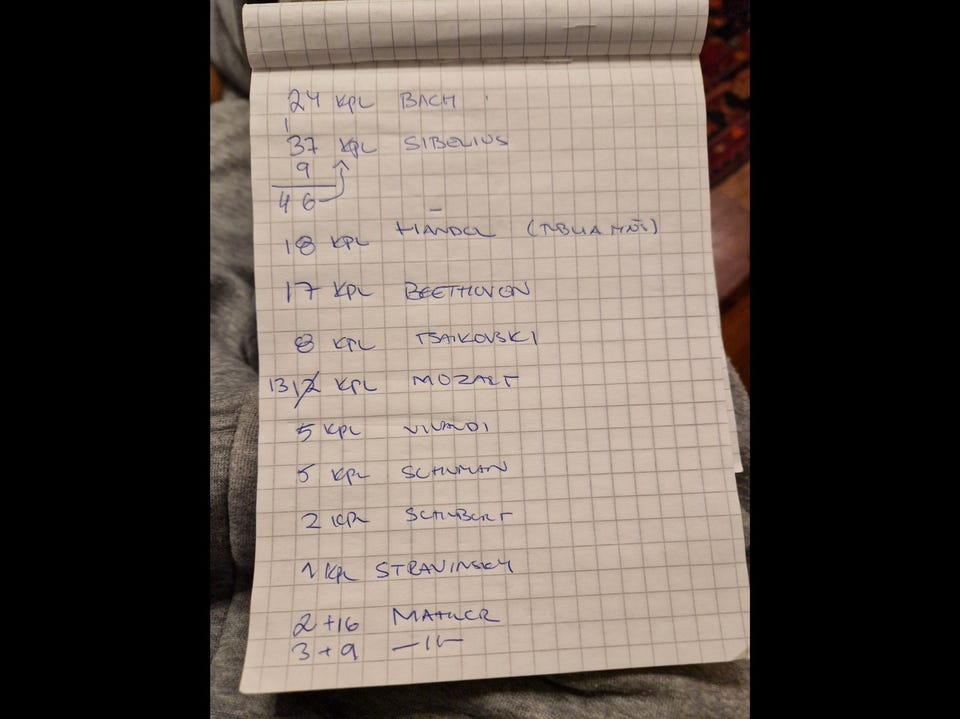 24 KPL BACH
1
37 KPL SIBELIUS
9
46
18 KPL HÄNDEL
17 KPL BEETHOVEN
8 KPL TSAIKOVSKI
13 12 KPL MOZART
5 KPL VIVALDI
5 KPL SCHUMAN
2 KPL SCHUBERT
1 KPL STRAVINSKY
2 +16 MAHLER
3 + 9 —11—